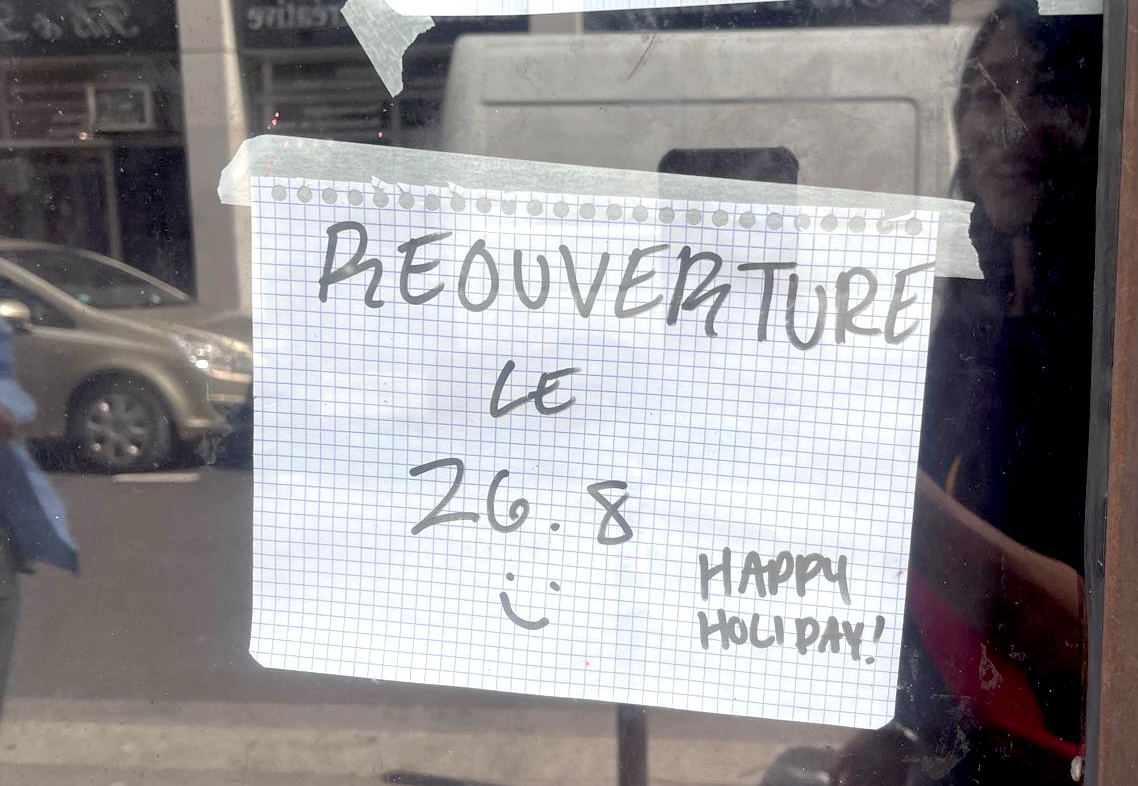 REOUVERTURE
LE
26.8
HAPPY
HOLIDAY!